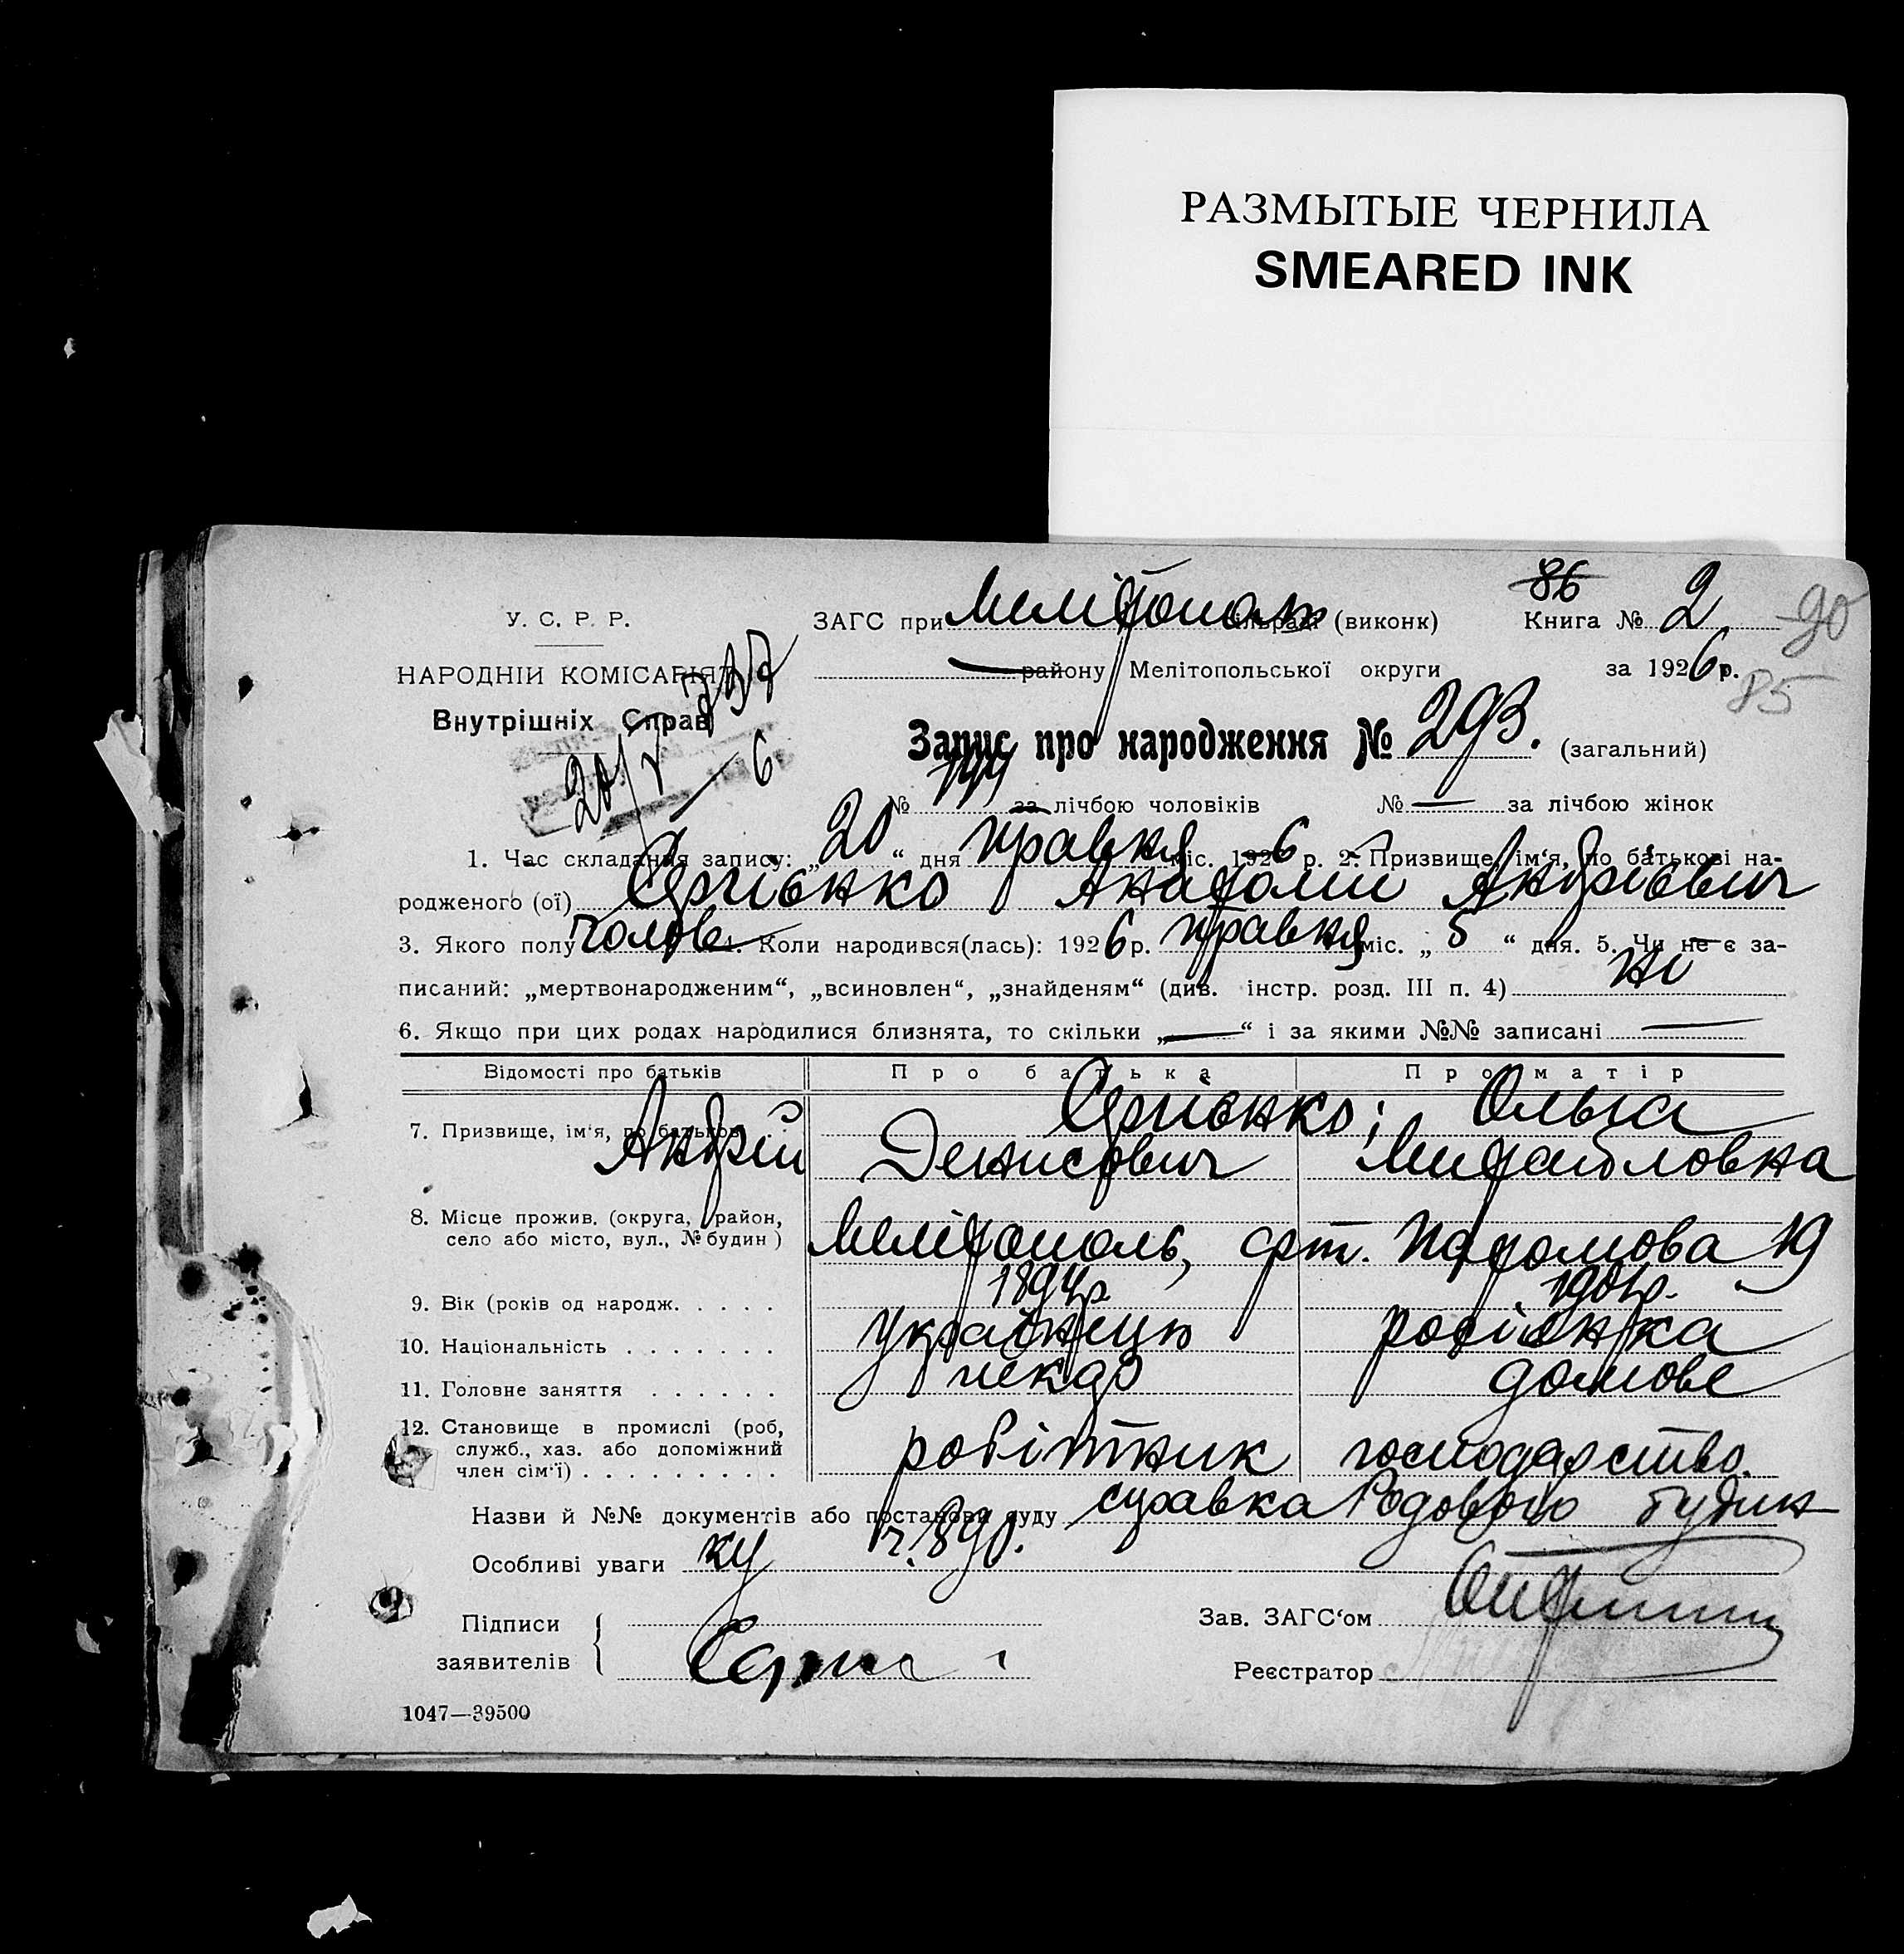 РАЗМЫТЫЕ ЧЕРНИЛА
SMEARED INK
86
У. С. Р. Р. ЗАГС при Мелітополь (виконк) Книга № 2 90
НАРОДНІЙ КОМІСАРІЯТ району Мелітопольської округи за 1926 р. 85
Внутрішніх Справ
20/V 6
Запис про народження № 293. (загальний)
№ за лічбою чоловіків № — за лічбою жінок
1. Час складання запису: „20“ дня травня міс. 1926 р. 2. Призвище, ім'я, по батькові на-
родженого (ої) Сергієнко Анатолій Андрієвич
3. Якого полу чолов 4. Коли народився(лась): 1926 р. травня міс. „5“ дня. 5. Чи не є за-
писаний: „мертвонародженим“, „всиновлен“, „знайденям“ (див. інстр. розд. III п. 4) ні
6. Якщо при цих родах народилися близнята, то скільки „—“ і за якими №№ записані —
Відомості про батьків Про батька Про матір
Сергієнко; Ольга
7. Призвище, ім'я, по батьков
Андрій Денисович Михайловна
8. Місце прожив. (округа, район,
село або місто, вул., № будин) Меліфополь, 19
9. Вік (років од народж. . . . . 1894р 1901р.
10. Національність . . . . . . . українець
11. Головне заняття . . . . . . пекар домове
12. Становище в промислі (роб,
служб., хаз. або допоміжний
член сім'ї) . . . . . . . . . робітник господарство.
Назви й №№ документів або постанови суду справка Родового будин
Особливі уваги ку ч. 890.
Підписи Зав. ЗАГС'ом
заявителів Серги Реєстратор
1047—39500